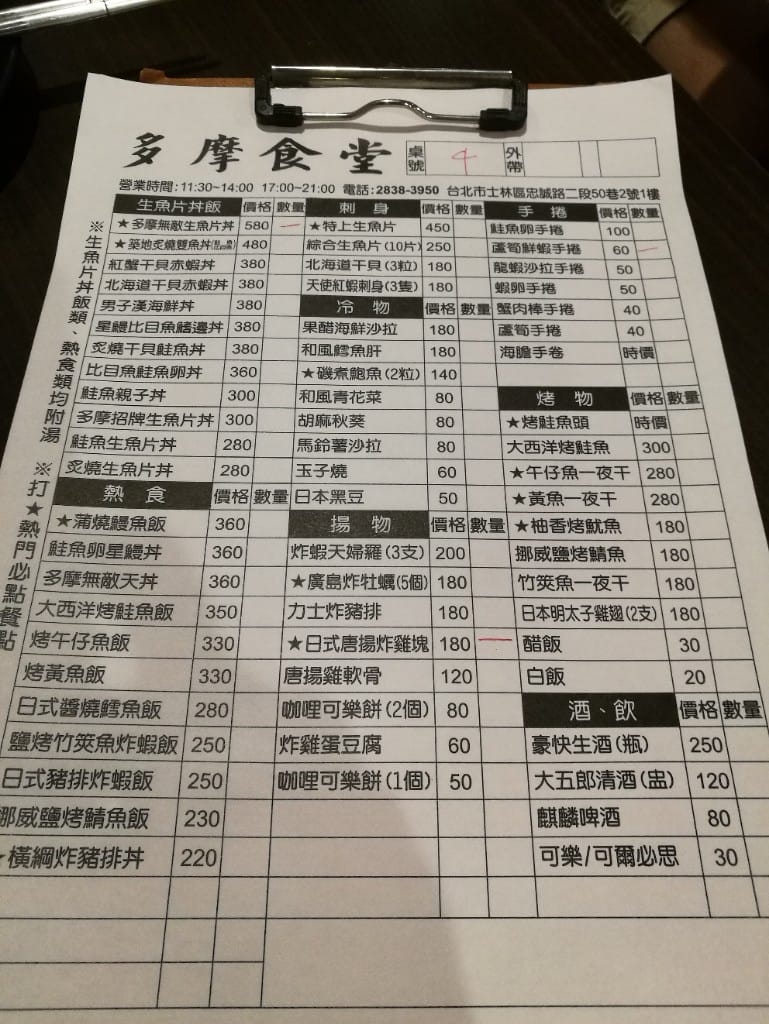 多摩食堂
桌號 4 外帶
營業時間:11:30~14:00 17:00~21:00 電話:2838-3950 台北市士林區忠誠路二段50巷2號1樓
※生魚片丼飯類、熱食類均附湯 ※打★熱門必點餐點
生魚片丼飯 價格 數量
★多摩無敵生魚片丼 580 一
★築地炙燒雙魚丼 480
紅蟹干貝赤蝦丼 380
北海道干貝赤蝦丼 380
男子漢海鮮丼 380
星鰻比目魚鰭邊丼 380
炙燒干貝鮭魚丼 380
比目魚鮭魚卵丼 360
鮭魚親子丼 300
多摩招牌生魚片丼 300
鮭魚生魚片丼 280
炙燒生魚片丼 280
熱食 價格 數量
★蒲燒鰻魚飯 360
鮭魚卵星鰻丼 360
多摩無敵天丼 360
大西洋烤鮭魚飯 350
烤午仔魚飯 330
烤黃魚飯 330
日式醬燒鱈魚飯 280
鹽烤竹筴魚炸蝦飯 250
日式豬排炸蝦飯 250
挪威鹽烤鯖魚飯 230
★橫綱炸豬排丼 220
刺身 價格 數量
★特上生魚片 450
綜合生魚片(10片) 250
北海道干貝(3粒) 180
天使紅蝦刺身(3隻) 180
冷物 價格 數量
果醋海鮮沙拉 180
和風鱈魚肝 180
★磯煮鮑魚(2粒) 140
和風青花菜 80
胡麻秋葵 80
馬鈴薯沙拉 80
玉子燒 60
日本黑豆 50
揚物 價格 數量
炸蝦天婦羅(3支) 200
★廣島炸牡蠣(5個) 180
力士炸豬排 180
★日式唐揚炸雞塊 180 一
唐揚雞軟骨 120
咖哩可樂餅(2個) 80
炸雞蛋豆腐 60
咖哩可樂餅(1個) 50
手捲 價格 數量
鮭魚卵手捲 100
蘆筍鮮蝦手捲 60 一
龍蝦沙拉手捲 50
蝦卵手捲 50
蟹肉棒手捲 40
蘆筍手捲 40
海膽手卷 時價
烤物 價格 數量
★烤鮭魚頭 時價
大西洋烤鮭魚 300
★午仔魚一夜干 280
★黃魚一夜干 280
★柚香烤魷魚 180
挪威鹽烤鯖魚 180
竹筴魚一夜干 180
日本明太子雞翅(2支) 180
醋飯 30
白飯 20
酒、飲 價格 數量
豪快生酒(瓶) 250
大五郎清酒(盅) 120
麒麟啤酒 80
可樂/可爾必思 30